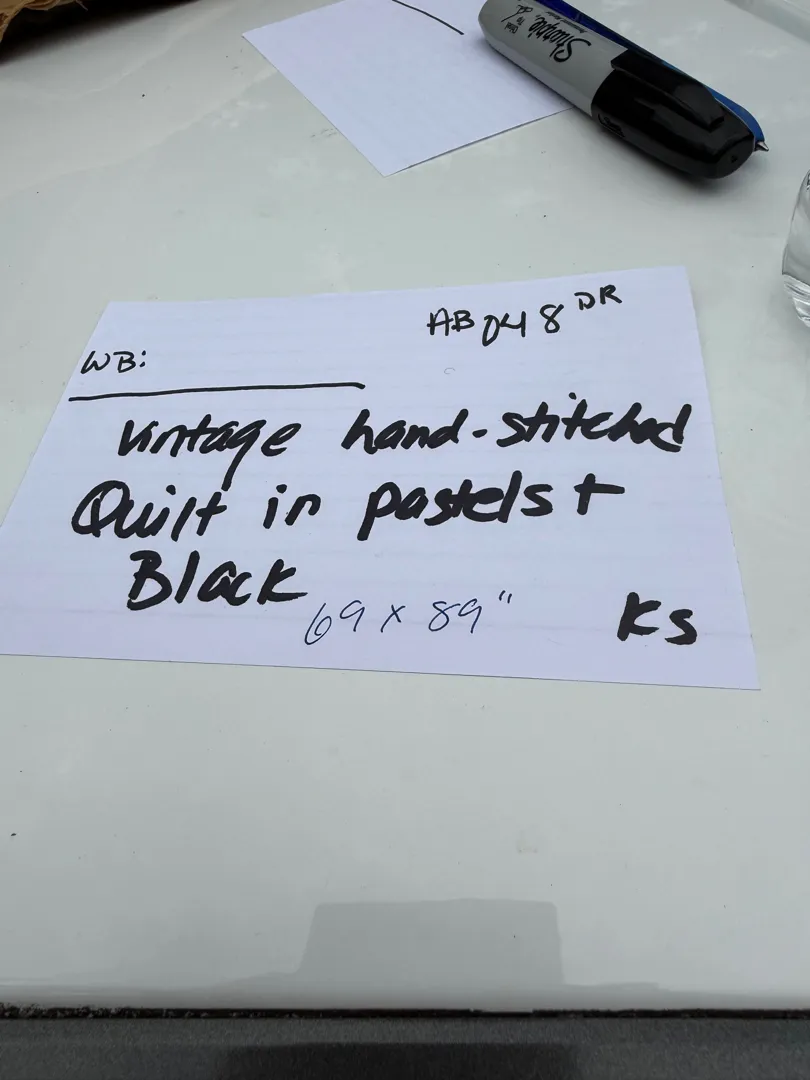 AB 048 DR
WB:
Vintage hand-stitched
Quilt in pastels +
Black
69 x 89"
KS
Sharpie